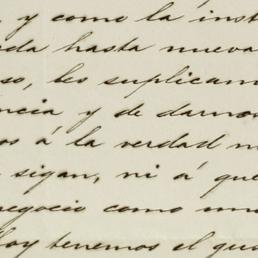 , y como la inst
da hasta nueva
so, les suplicam
ncia y de darnos
os á la verdad n
sigan, ni á que
negocio como un
Hoy tenemos el gus